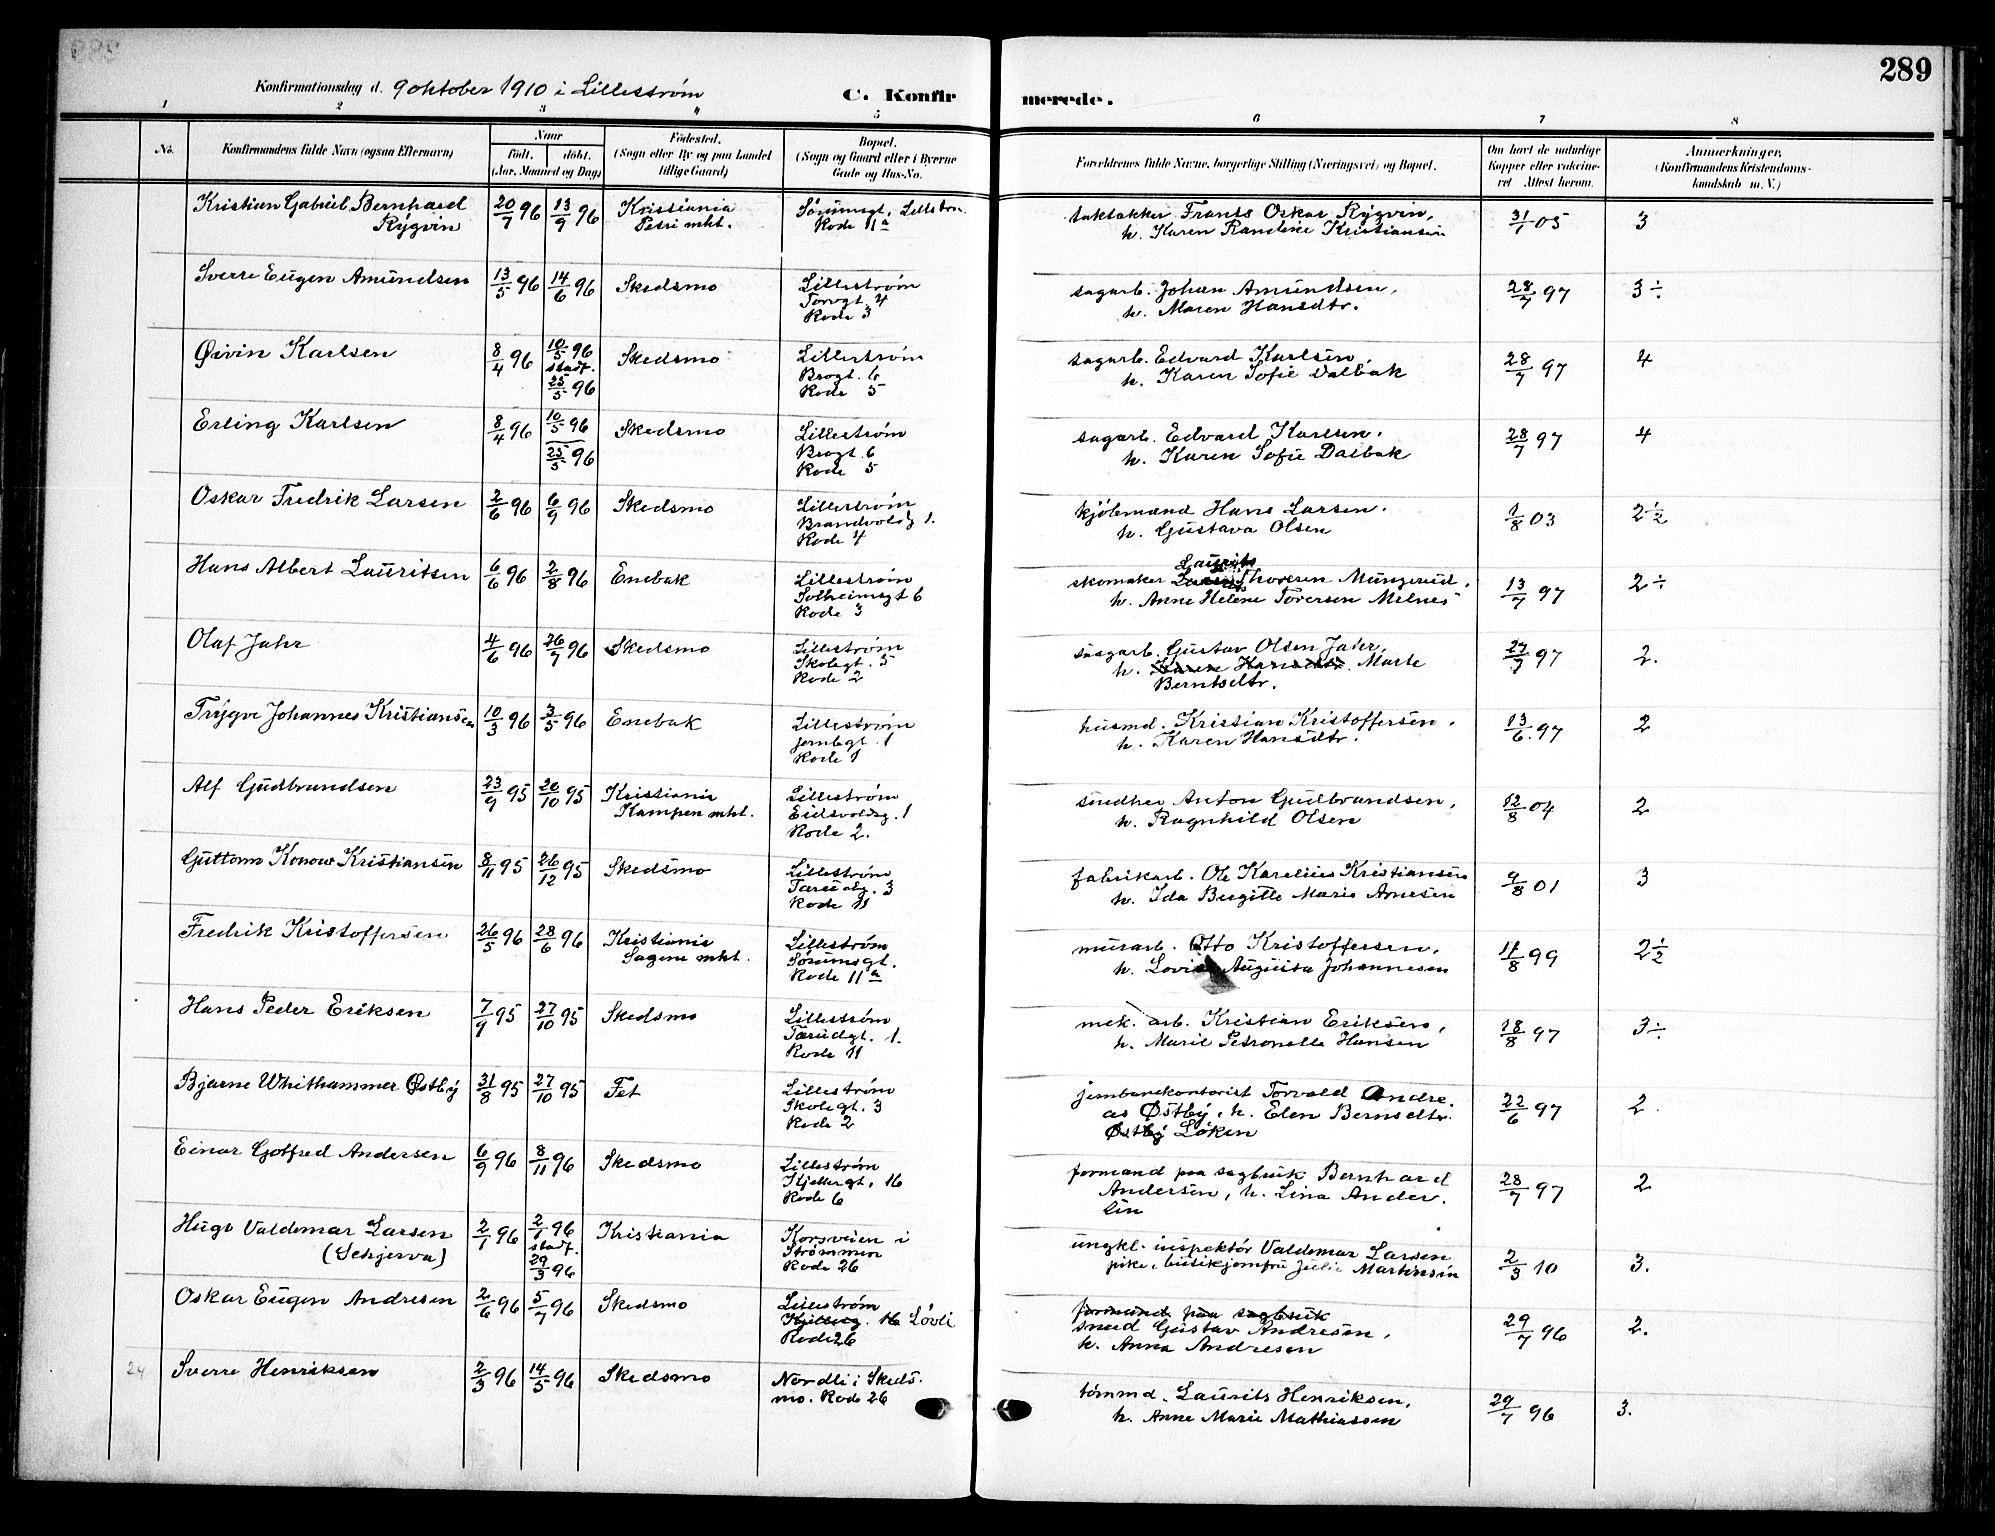 289
Konfirmationsdag d. 9 oktober 1910 i Lillestrøm
C. Konfirmerede.
1 2 3 4 5 6 7 8
No.
Konfirmandens fulde Navn (ogsaa Efternavn)
Naar
født. døbt.
(Aar, Maaned og Dag)
Fødested.
(Sogn eller By og paa Landet
tillige Gaard)
Bopæl.
(Sogn og Gaard eller i Byerne
Gade og Hus-No.
Forældrenes fulde Navne, borgerlige Stilling (Næringsvei) og Bopæl.
Om havt de naturlige
Kopper eller vakcine-
ret Attest herom.
Anmærkninger,
(Konfirmandens Kristendoms-
kundskab m. V.)
Kristian Gabriel Bernhard Rýgvin 20/7 96 13/9 96 Kristiania Petri mht. Sørumsgt. Lillestrøm Rode 11a
taktækker Frants Oskar Rýgvin, h. Karen Randine Kristiansen 31/1 05 3
Sverre Eugen Amundsen 13/5 96 14/6 96 Skedsmo Lillestrøm Torvgt. 4 Rode 3
sagarb. Johan Amundsen, h. Maren Hansdtr. 28/7 97 3÷
Øivin Karlsen 8/4 96 10/5 96 stadf. 25/5 96 Skedsmo Lillestrøm Brogt. 6 Rode 5
sagarb. Edvard Karlsen, h. Karen Sofie Dalbak 28/7 97 4
Erling Karlsen 8/4 96 10/5 96 25/5 96 Skedsmo Lillestrøm Brogt. 6 Rode 5
sagarb. Edvard Karlsen, h. Karen Sofie Dalbak 28/7 97 4
Oskar Fredrik Larsen 2/6 96 6/9 96 Skedsmo Lillestrøm Brandvoldg 1. Rode 4
kjøbmand Hans Larsen. h. Gustava Olsen 1/8 03 2½
Hans Albert Lauritsen 6/6 96 2/8 96 Enebak Lillestrøm Solheimsgt 6 Rode 3
skomaker Laurits Thoresen Mungerud, h. Anne Helene Toresen Melnes 13/7 97 2÷
Olaf Jahr 4/6 96 26/7 96 Skedsmo Lillestrøm Skolegt. 5 Rode 2
sagarb. Gustav Olsen Jahr, h. Karen Hansdtr. Marte Berntsdtr. 27/7 97 2.
Trýgve Johannes Kristiansen 10/3 96 3/5 96 Enebak Lillestrøm jernbgt. 1 Rode 1
husmd. Kristian Kristoffersen, h. Karen Hansdtr. 13/6 97 2
Alf Gudbrandsen 23/9 95 20/10 95 Kristiania Kampen mht. Lillestrøm Eidsvoldsg. 1 Rode 2.
snedker Anton Gudbrandsen, h. Ragnhild Olsen 12/8 04 2
Guttorm Konow Kristiansen 8/11 95 26/12 95 Skedsmo Lillestrøm Tærudg. 3 Rode 11
fabrikarb. Ole Karelius Kristiansen h. Ida Birgitte Marie Arnesen 9/8 01 3
Fredrik Kristoffersen 26/5 96 28/6 96 Kristiania Sagene mht. Lillestrøm Sørumsgt. Rode 11a
murarb. Otto Kristoffersen, h. Lovise Augusta Johannesen 11/8 99 2½
Hans Peder Eriksen 7/9 95 27/10 95 Skedsmo Lillestrøm Tærudgt. 1. Rode 11
mek. arb. Kristian Eriksen, h. Marie Petronelle Hansen 18/8 97 3÷
Bjarne Whithammer Østbý 31/8 95 27/10 95 Fet Lillestrøm Skolegt. 3 Rode 2
jernbanekontorist Torvald Andreas Østbý, h. Elen Berntsdtr. Østbý Løken 22/6 97 2.
Einar Gotfred Andersen 6/9 96 8/11 96 Skedsmo Lillestrøm Kjellergt. 16 Rode 6
formand paa sagbruk Bernhard Andersen, h. Lina Andersen 28/7 97 2
Hugo Valdemar Larsen (Schjerva) 2/1 96 2/1 96 stadf. 29/3 96 Kristiania Korsveien i Strømmen Rode 26
ungkl. inspektør Valdemar Larsen pike, butikjomfru Julie Martinsen 2/3 10 3.
Oskar Eugen Andresen 2/6 96 5/7 96 Skedsmo Lillestrøm Kjellerg. 16 Løvli Rode 26
formand paa sagbruk smed Gustav Andresen, h. Anna Andresen 29/7 96 2.
24 Sverre Henriksen 2/3 96 14/5 96 Skedsmo Nordli i Skedsmo. Rode 26
tømmd. Laurits Henriksen, h. Anne Marie Mathiassen 29/7 96 3.